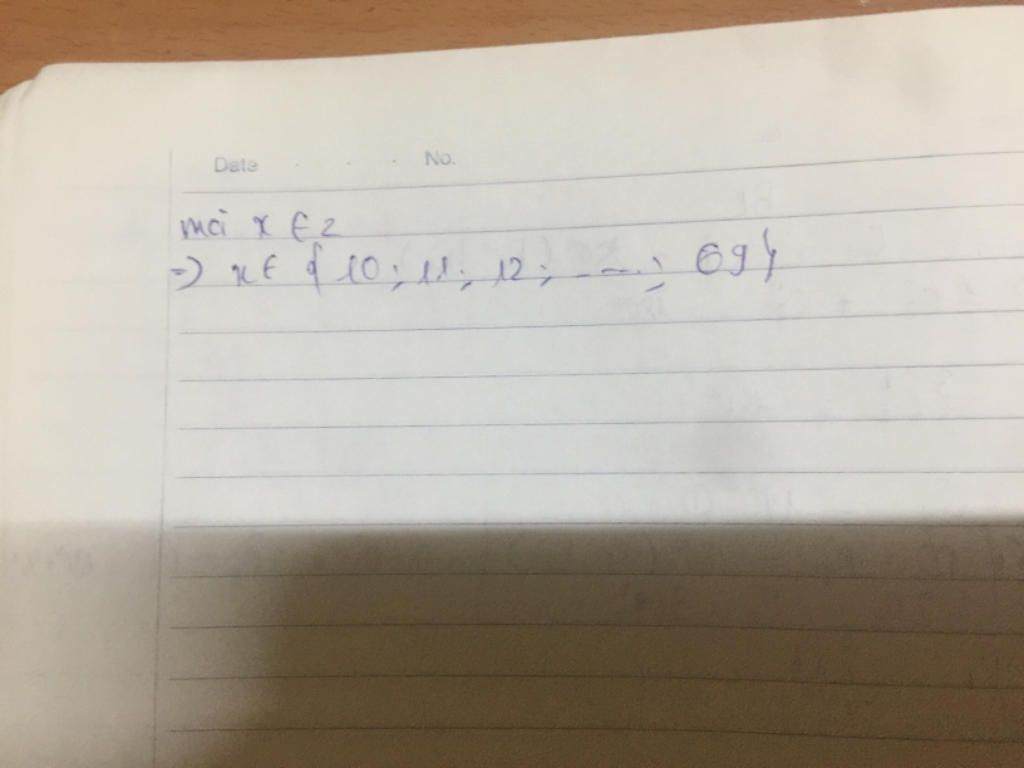 Date No.
mà x ∈ z
=> x ∈ { 10 ; 11 ; 12 ; ... ; 69 }